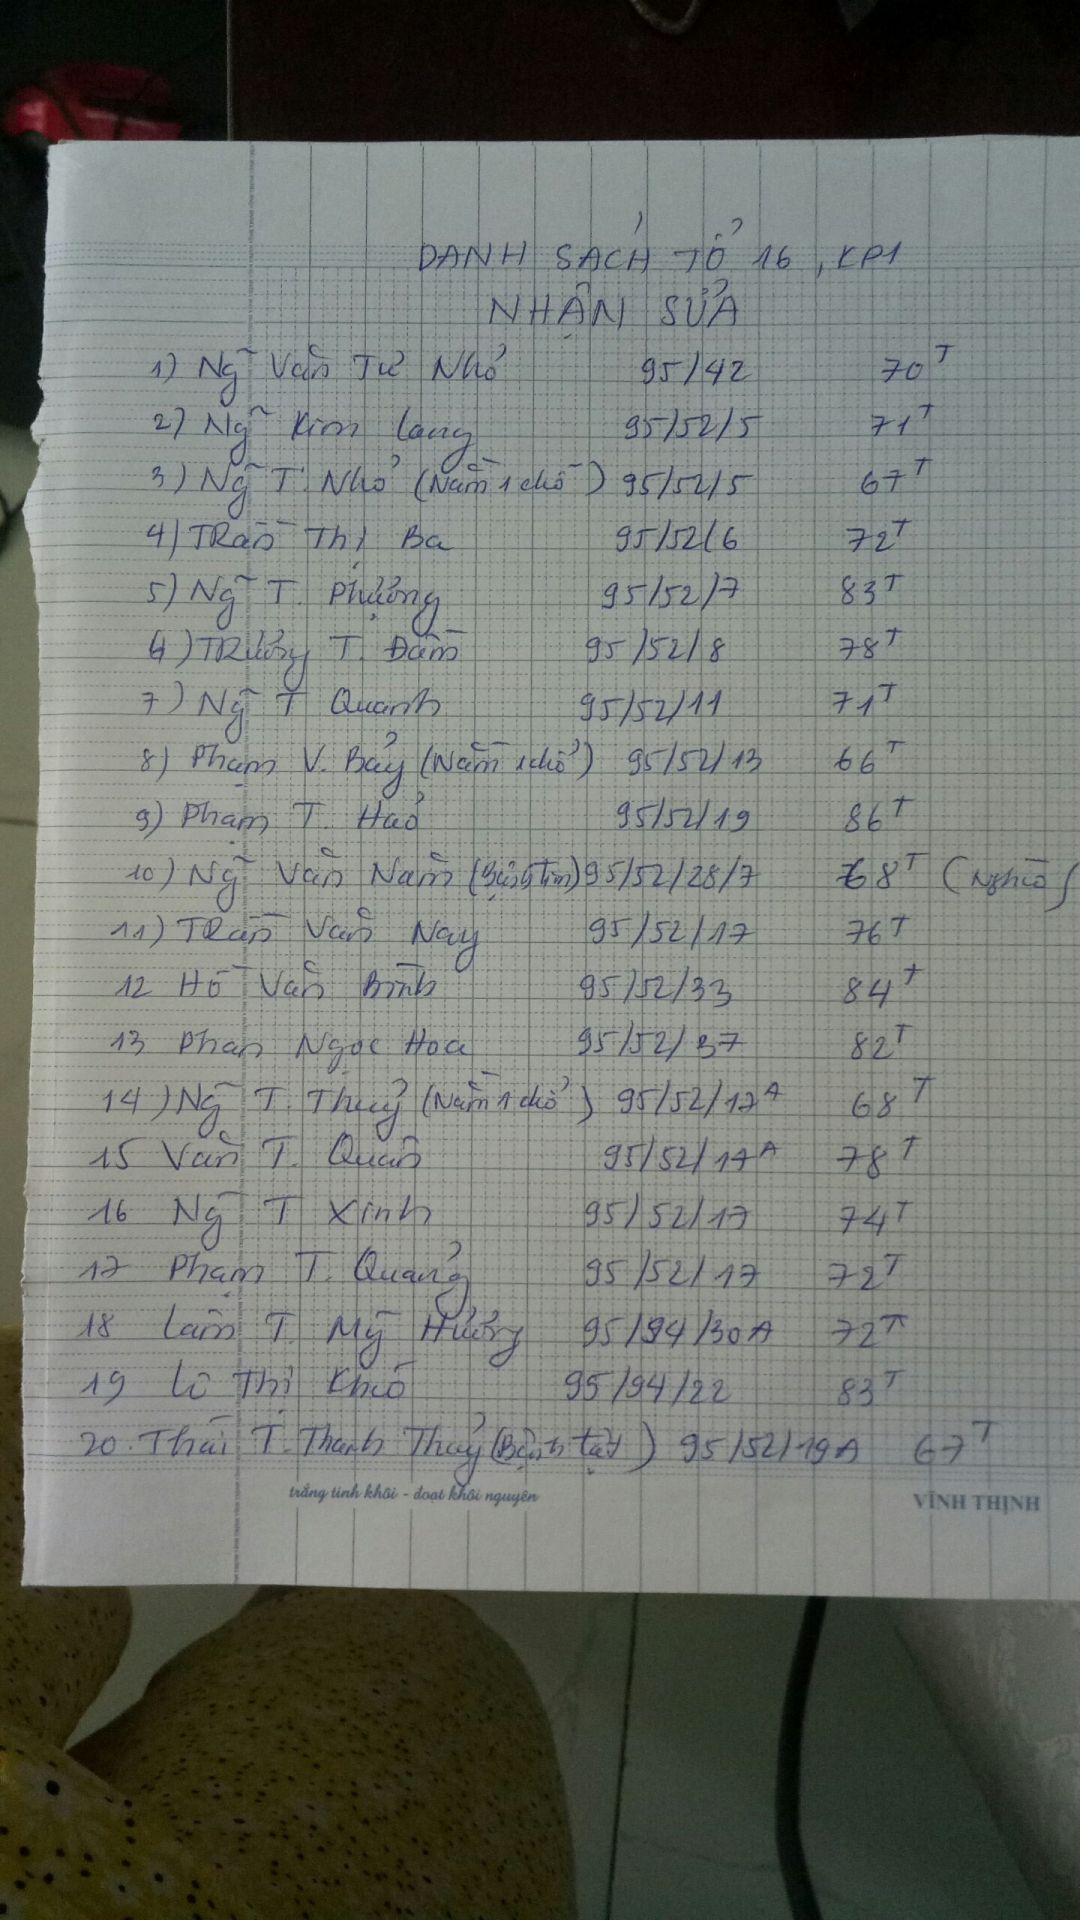 DANH SÁCH TỔ 16, KP1
NHẬN SỮA
1) Ng~ Văn Tư Nhỏ 95/42 70T
2) Ng~ Kim Lang 95/52/5 71T
3) Ng~ T. Nhỏ (Nằm 1 chỗ) 95/52/5 67T
4) Trần Thị Ba 95/52/6 72T
5) Ng~ T. Phượng 95/52/7 83T
6) Trương T. Đầm 95/52/8 78T
7) Ng~ T Quanh 95/52/11 71T
8) Phạm V. Bảy (Nằm 1 chổ) 95/52/13 66T
9) Phạm T. Hảo 95/52/19 86T
10) Ng~ Văn Năm (Bệnh tim) 95/52/28/7 68T (Nghèo)
11) Trần Văn Nay 95/52/17 76T
12 Hồ Văn Bình 95/52/33 84T
13 Phan Ngọc Hoa 95/52/37 82T
14) Ng~ T. Thuỷ (Nằm 1 chổ) 95/52/17A 68T
15 Văn T. Quân 95/52/17A 78T
16 Ng~ T Xinh 95/52/17 74T
17 Phạm T. Quảng 95/52/17 72T
18 Lâm T. Mỹ Hưởng 95/94/30A 72T
19 Lê Thị Khéo 95/94/22 83T
20. Thái T. Thanh Thuỷ (Bệnh tật) 95/52/19A 67T
trắng tinh khôi - đoạt khôi nguyên VĨNH THỊNH